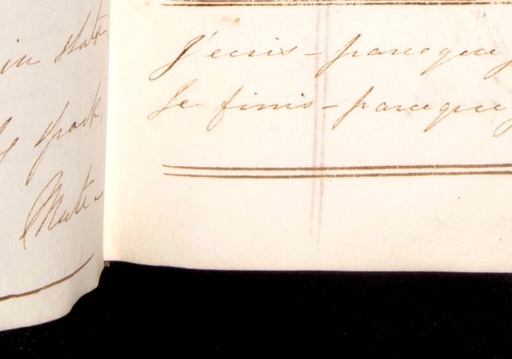 in stat
spark
Mute
J'ecris - parceque
Je finis - parceque